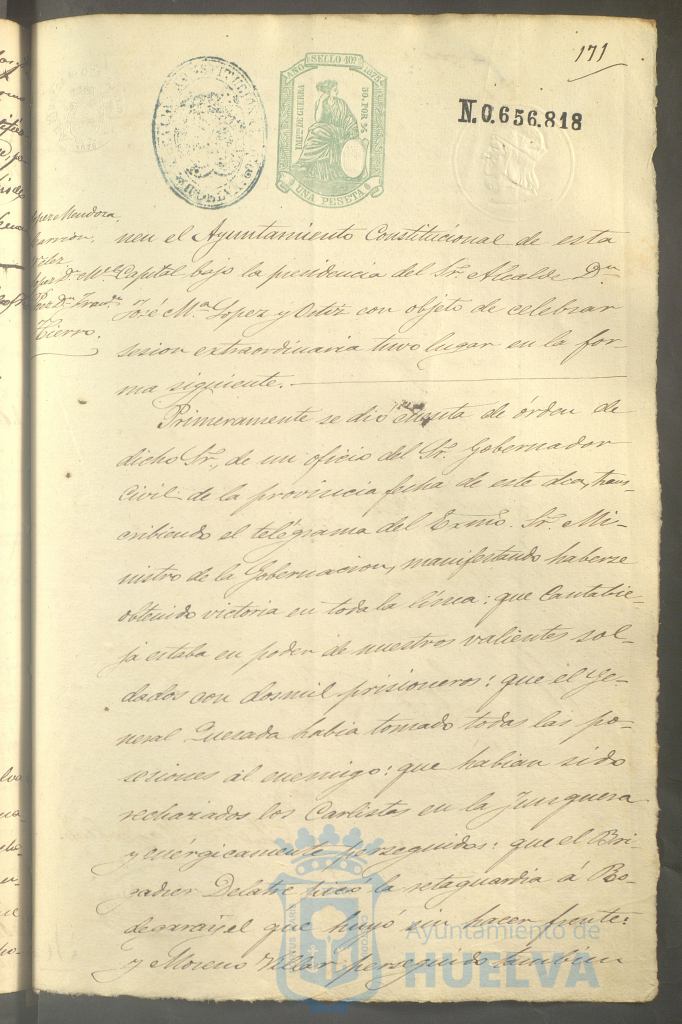 171
AÑO SELLO 10º 1875
IMPTO DE GUERRA
50 POR %
UNA PESETA
N.0.656.818
Lopez Mendoza,
Lopez Dn. Mel.
Dn. Franco.
Tierro.
nen el Ayuntamiento Constitucional de esta
Capital bajo la presidencia del Sr. Alcalde Dn.
José Ma. Lopez y Ortiz con objeto de celebrar
sesion extraordinaria tuvo lugar en la for-
ma siguiente.
Primeramente se dió cuenta de órden de
dicho Sr., de un oficio del Sr. Gobernador
Civil de la provincia fecha de este dia, trans-
cribiendo el telégrama del Exmo. Sr. Mi-
nistro de la Gobernacion, manifestando haberse
obtenido victoria en toda la línea: que Cantabie-
ja estaba en poder de nuestros valientes sol-
dados con dos mil prisioneros: que el Ge-
neral Quesada habia tomado todas las po-
seciones al enemigo: que habian sido
rechazados los Carlistas en la Junquera
y enérgicamente perseguidos: que el Bri-
gadier Delatre picó la retaguardia á Bo-
degaray el que huyó sin hacer frente:
y Moreno Villar perseguido tambien
Ayuntamiento de
HUELVA